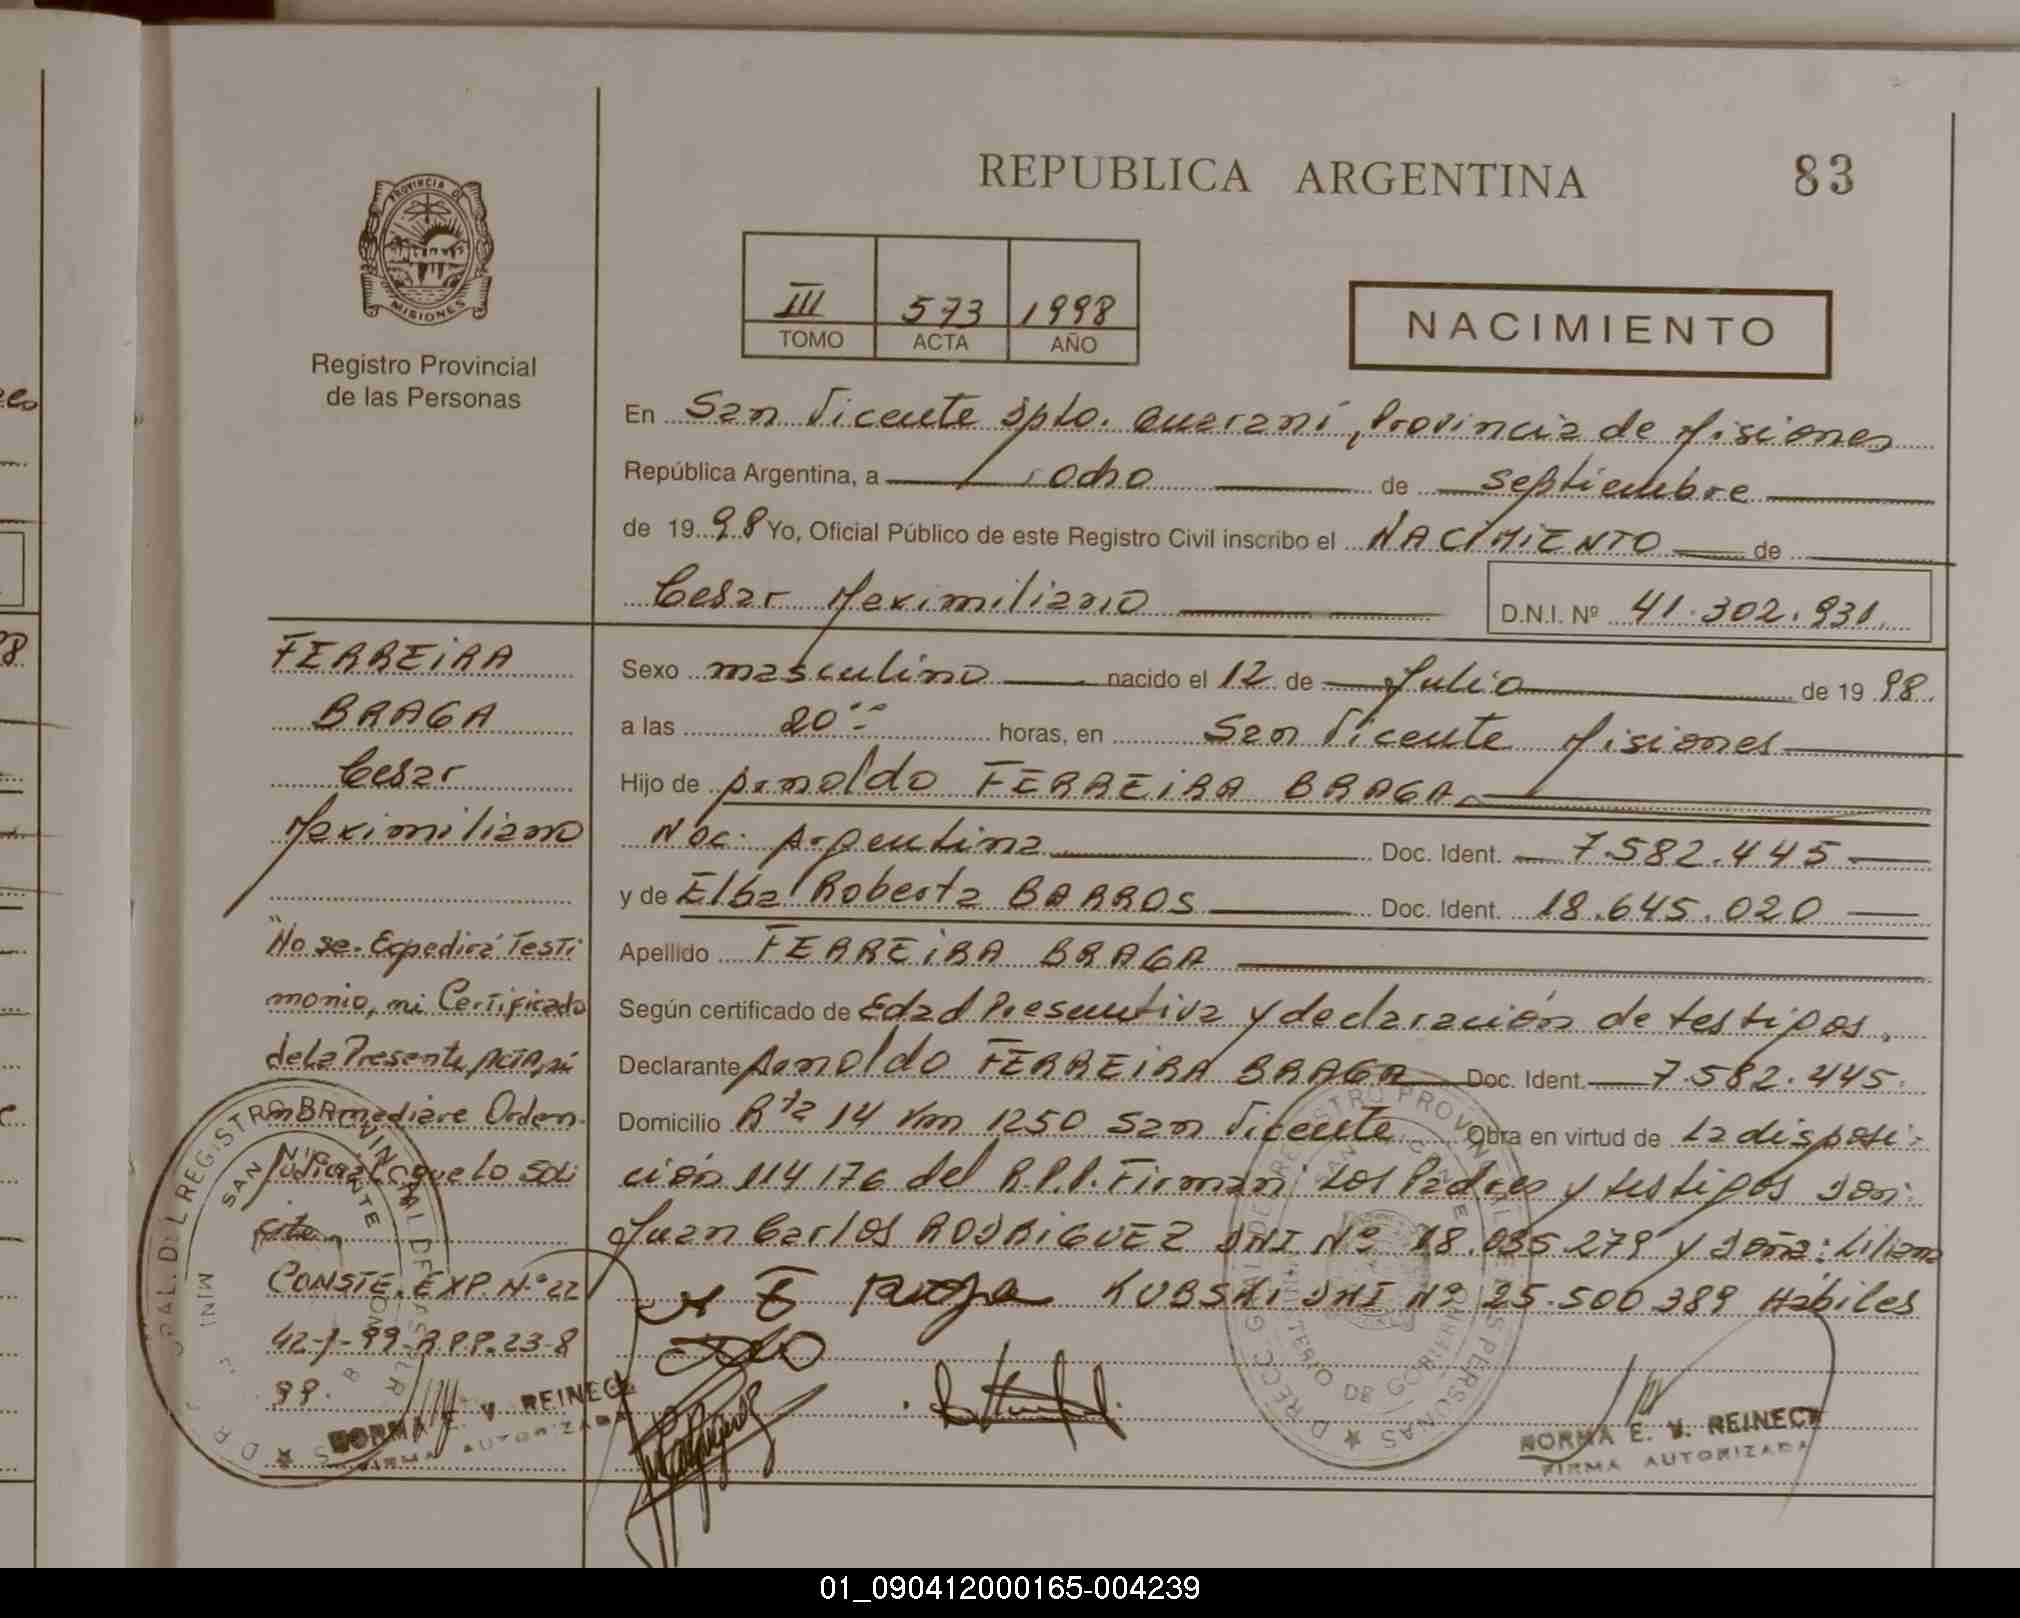 REPUBLICA ARGENTINA
83
PROVINCIA DE
MISIONES
Registro Provincial
de las Personas
III 573 1998
TOMO ACTA AÑO
NACIMIENTO
En San Vicente Dpto. Guaraní, Provincia de Misiones
República Argentina, a ocho de septiembre
de 1998 Yo, Oficial Público de este Registro Civil inscribo el NACIMIENTO de
Cesar Maximiliano
D.N.I. Nº 41.302.931
FERREIRA
BRAGA
Cesar
Maximiliano
"No se Expedirá Testi
monio, ni Certificado
de la Presente ACTA, si
mediare Orden
Judicial que lo Soli
cite
CONSTE. EXP. N.º 22
42-1-99-R.P.P. 23-8
99.
Sexo masculino nacido el 12 de Julio de 1998.
a las 20 horas, en San Vicente Misiones
Hijo de Arnoldo FERREIRA BRAGA
Nac. Argentina Doc. Ident. 7.582.445
y de Elba Roberta BARROS Doc. Ident. 18.645.020
Apellido FERREIRA BRAGA
Según certificado de Edad Presuntiva y declaración de testigos,
Declarante Arnoldo FERREIRA BRAGA Doc. Ident. 7.582.445.
Domicilio Rta 14 Km 1250 San Vicente Obra en virtud de la disposi-
ción 114176 del R.P.P. Firman los Padres y testigos don:
Juan Carlos RODRIGUEZ DNI Nº 18.035.279 y doña: Liliana
KUBSKI DNI Nº 25.500.389 Hábiles
NORMA E. V. REINECK
FIRMA AUTORIZADA
NORMA E. V. REINECK
FIRMA AUTORIZADA
01_090412000165-004239